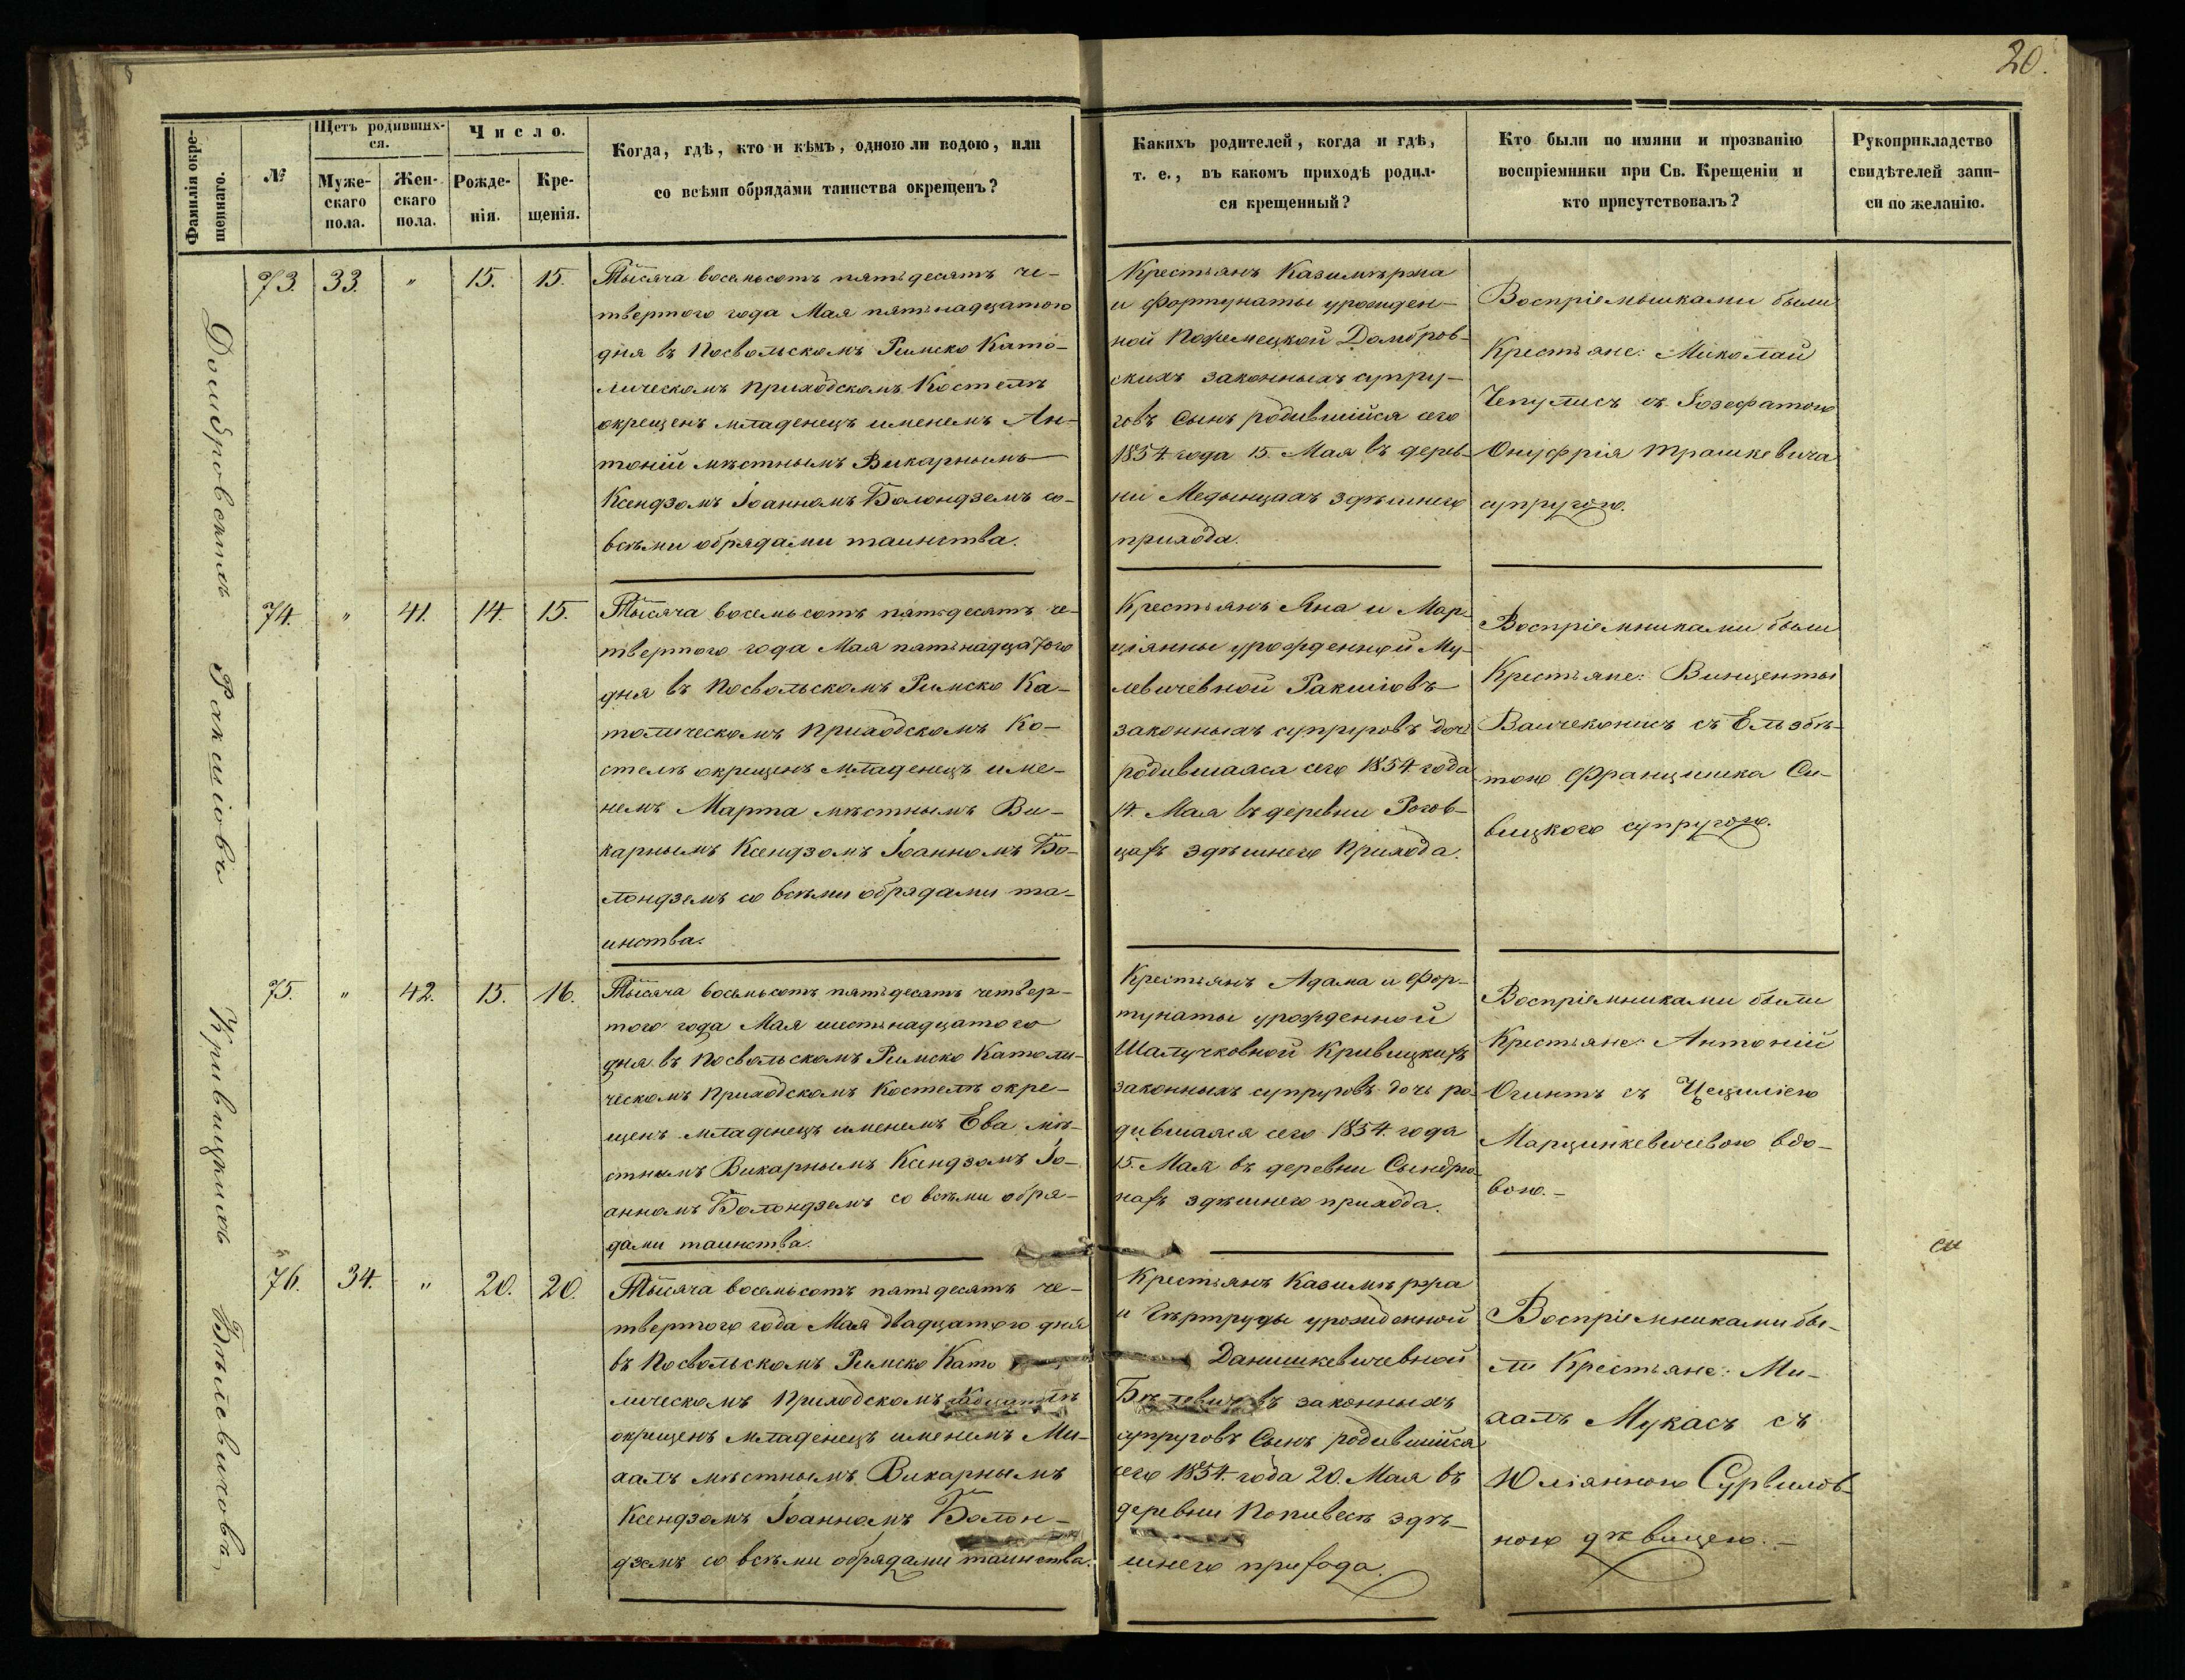 20.
Фамилія окре-
щеннаго.
№
Щетъ родивших-
ся.
Муже-
скаго
пола.
Жен-
скаго
пола.
Число.
Рожде-
нія.
Кре-
щенія.
Когда, гдѣ, кто и кѣмъ, одною ли водою, или
со всѣми обрядами таинства окрещенъ?
Какихъ родителей, когда и гдѣ,
т. е., въ какомъ приходѣ родил-
ся крещенный?
Кто были по имяни и прозванію
воспріемники при Св. Крещеніи и
кто присутствовалъ?
Рукоприкладство
свидѣтелей запи-
си по желанію.
Домбровскихъ
73.
33.
"
15.
15.
Тысяча восемьсотъ пятьдесятъ че-
твертого года Мая пятьнадцатого
дня въ Посвольскомъ Римско Като-
лическомъ приходскомъ Костелѣ
окрещенъ младенецъ именемъ Ан-
тоній мѣстнымъ Викарнымъ
Ксендзомъ Іоанномъ Болондземъ со-
всѣми обрядами таинства.
Крестьянъ Казимѣржа
и Фортунаты урожден-
ной Пожемецкой Домбров-
скихъ законныхъ супру-
говъ Сынъ родившійся сего
1854 года 15 Мая въ дерев-
ни Медынцахъ здѣшнего
прихода.
Воспріемниками были
Крестьяне: Миколай
Чепулисъ съ Іозефатою
Онуфрія Трашкевича
супругою.
Ракшіовъ
74.
"
41.
14.
15.
Тысяча восемьсотъ пятьдесятъ че-
твертого года Мая пятьнадцатого
дня въ Посвольскомъ Римско Ка-
толическомъ приходскомъ Ко-
стелѣ окрещенъ младенецъ име-
немъ Марта мѣстнымъ Ви-
карнымъ Ксендзомъ Іоанномъ Бо-
лондземъ со всѣми обрядами та-
инства.
Крестьянъ Яна и Мар-
ціянны урожденной Му-
левичевной Ракшіовъ
законныхъ супруговъ дочь
родившаяся сего 1854 года
14. Мая въ деревни Рогов-
цахъ здѣшнего Прихода.
Воспріемниками были
Крестьяне: Винценты
Вайчеконисъ съ Ельзбѣ-
тою Францишка Си-
вицкого супругою.
Кривицкихъ
75.
"
42.
15.
16.
Тысяча восемьсотъ пятьдесятъ четвер-
того года Мая шестьнадцатого
дня въ Посвольскомъ Римско Католи-
ческомъ Приходскомъ Костелѣ окре-
щенъ младенецъ именемъ Ева мѣ-
стнымъ Викарнымъ Ксендзомъ Іо-
анномъ Болондземъ со всѣми обря-
дами таинства.
Крестьянъ Адама и Фор-
тунаты урожденной
Шалучковной Кривицкихъ
законныхъ супруговъ дочь ро-
дившаяся сего 1854 года
15. Мая въ деревни
здѣшнего прихода.
Воспріемниками были
Крестьяне: Антоній
Огинтъ съ Цецилією
Марцинкевичевою вдо-
вою.
Бѣлевичовъ
76.
34.
"
20.
20.
Тысяча восемьсотъ пятьдесятъ че-
твертого года Мая двадцатого дня
въ Посвольскомъ Римско Като
лическомъ Приходскомъ Костелѣ
окрещенъ младенецъ именемъ Ми-
халъ мѣстнымъ Викарнымъ
Ксендзомъ Іоанномъ Болон-
дземъ со всѣми обрядами таинства.
Крестьянъ Казимѣржа
и Гѣртруды урожденной
Данишкевичевной
Бѣлевичовъ законныхъ
супруговъ Сынъ родившійся
сего 1854 года 20. Мая въ
деревни Попивесѣ здѣ-
шнего прихода.
Воспріемниками бы-
ли Крестьяне: Ми-
халъ Мукасъ съ
Юліянною Сурвилов-
ною дѣвицею.